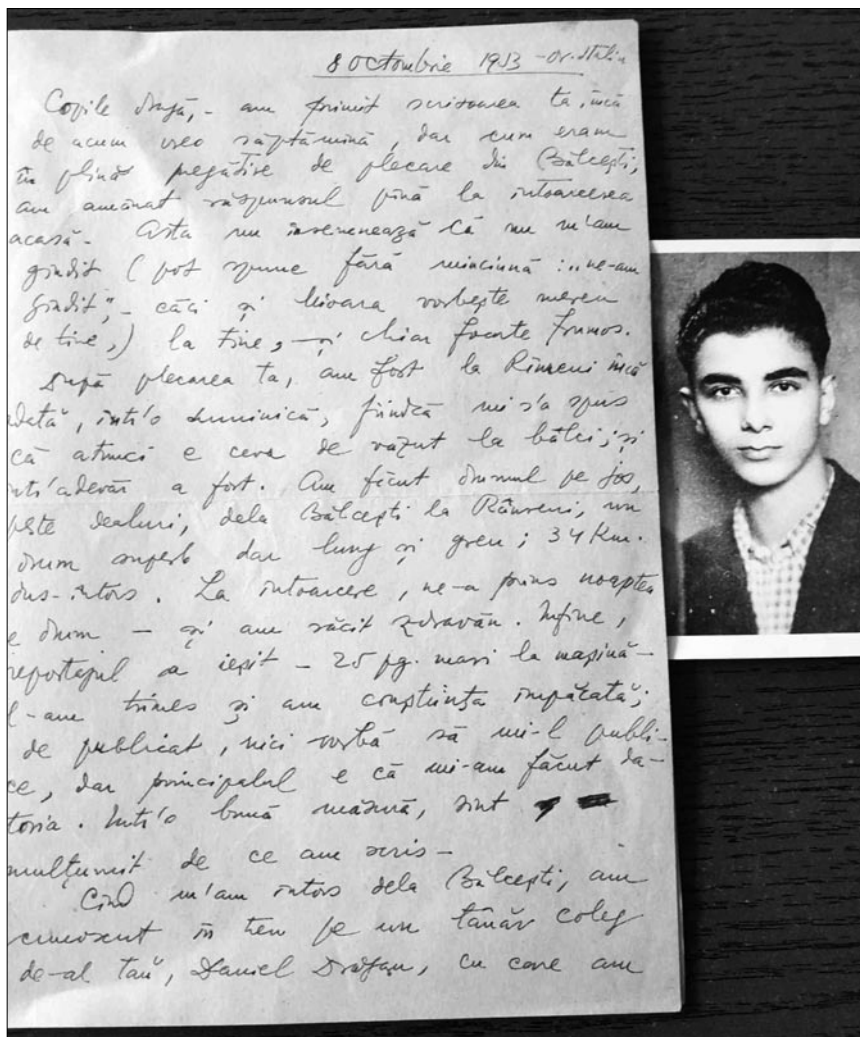 8 Octombrie 1953 - Or. Stalin
Copile dragă, - am primit scrisoarea ta, încă
de acum vreo săptămînă, dar cum eram
în plină pregătire de plecare din Bălcești,
am amânat răspunsul pînă la intoarcerea
acasă. Asta nu însemnează că nu m'am
gîndit (pot spune fără minciună: "ne-am
gîndit", - căci și Mioara vorbește mereu
de tine,) la tine, - și chiar foarte frumos.
După plecarea ta, am fost la Rîureni încă
odată, intr'o duminică, fiindcă mi s'a spus
că atunci e ceva de văzut la bâlci; și
intr'adevăr a fost. Am făcut drumul pe jos,
peste dealuri, dela Bălcești la Râureni, un
drum superb dar lung și greu; 34 Km.
dus-intors. La intoarcere, ne-a prins noaptea
pe drum - și am răcit zdravăn. Infine,
reportajul a ieșit - 25 pg. mari la mașină -
l-am trimes și am conștiința impăcată;
de publicat, nici vorbă să mi-l publi-
ce, dar principalul e că mi-am făcut da-
toria. Intr'o bună măsură, sint
mulțumit de ce am scris -
Cînd m'am intors dela Bălcești, am
cunoscut în tren pe un tânăr coleg
de-al tău, Daniel Drăgan, cu care am